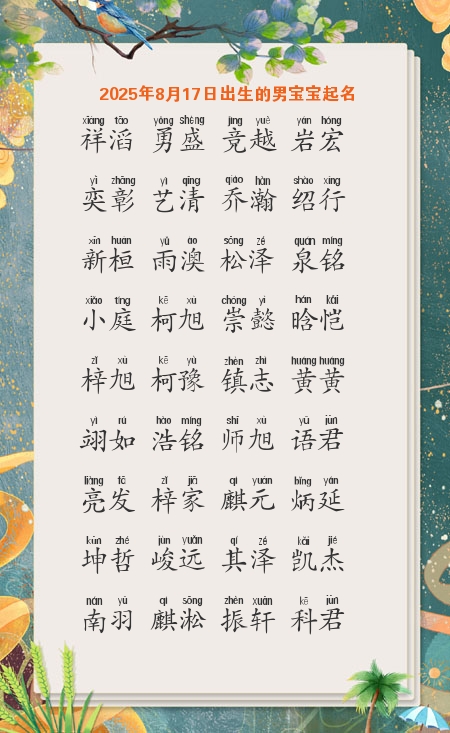 2025年8月17日出生的男宝宝起名
xiáng tāo yǒng shèng jìng yuè yán hóng
祥滔 勇盛 竞越 岩宏
yì zhāng yì qīng qiáo hàn shào xíng
奕彰 艺清 乔瀚 绍行
xīn huán yǔ ào sōng zé quán míng
新桓 雨澳 松泽 泉铭
xiǎo tíng kē xù chóng yì hán kǎi
小庭 柯旭 崇懿 晗恺
zǐ xù kē yù zhèn zhì huáng huáng
梓旭 柯豫 镇志 黄黄
yì rú hào míng shī xù yǔ jūn
翊如 浩铭 师旭 语君
liàng fā zǐ jiā qí yuán bǐng yán
亮发 梓家 麒元 炳延
kūn zhé jùn yuǎn qí zé kǎi jié
坤哲 峻远 其泽 凯杰
nán yǔ qí sōng zhèn xuān kē jūn
南羽 麒淞 振轩 科君